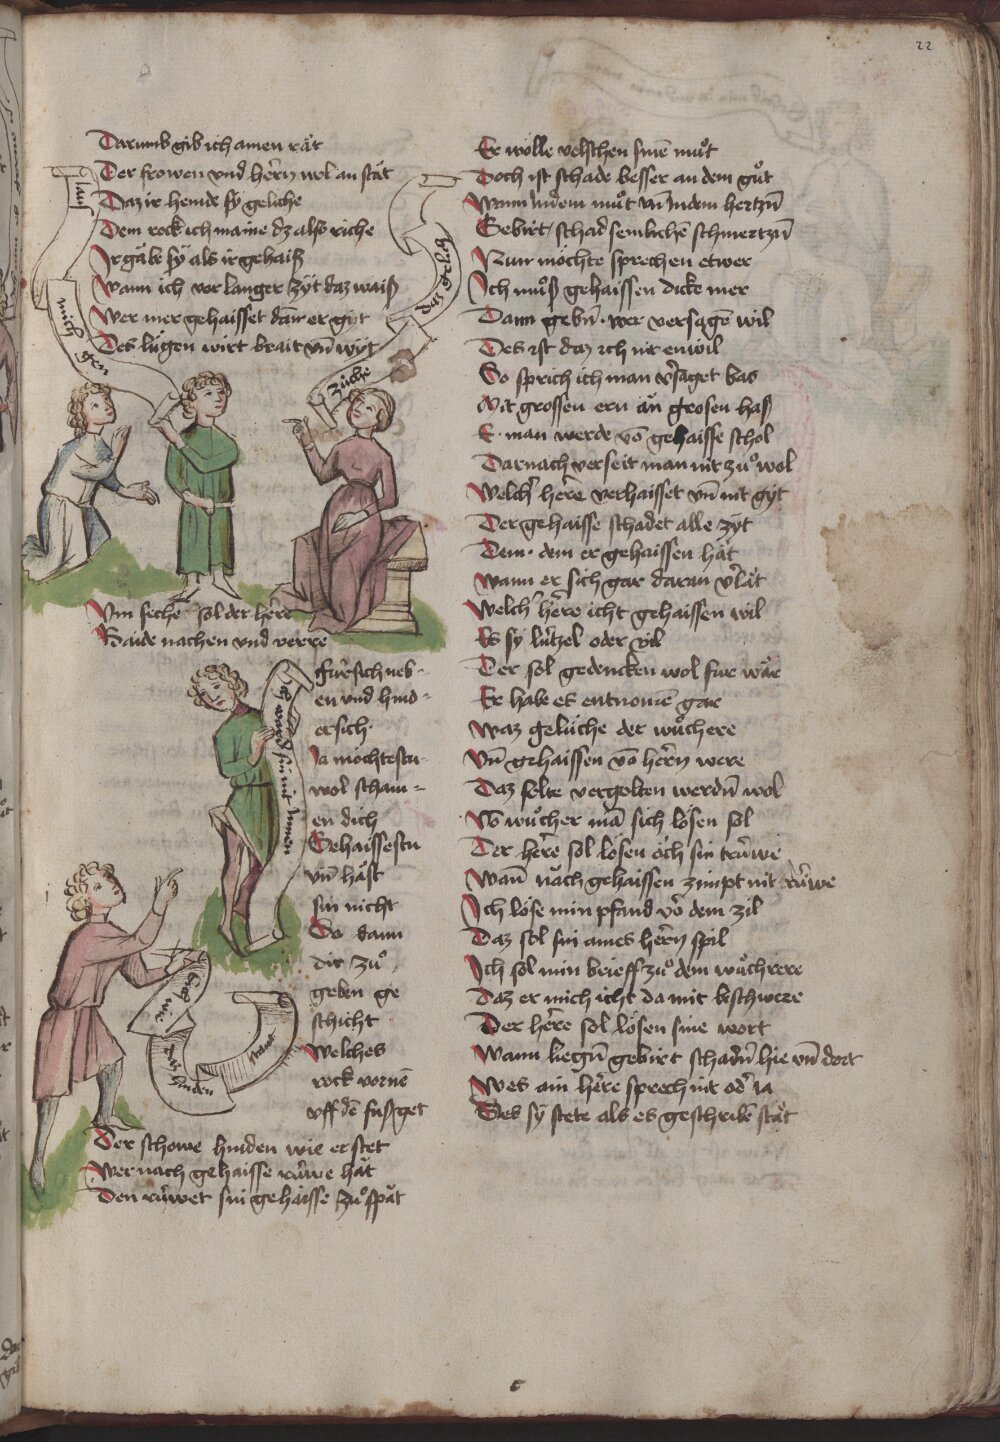 22
Darumb gib ich amen răt
Der frowen vnd hern wol an stăt
Daz ir hemde sy geliche
Dem rock ich maine dz also riche
Ir gäbe sy als ir gehaiß
Wann ich vor langer zÿt daz waiß
Wer mer gehaisset dann er gyt
Des lugen wirt brait vn̄ wyt
lauſ
mich gen
zuͤche
daz gelich
Vm seche sol der herre
Baide nachen vnd verre
fur sich neb-
en vnd hind-
er sich
Ja möchtestu
wol scham-
en dich
Gehaissestu
vn̄ hăst
sin nicht
So dann
dir zuͦ
geben ge
schicht
Welches
rock vornē
vff dē fuß get
Der schowe hinden wie er stet
Wer nach gehaisse ruwe hăt
Den ruwet sin gehaisse zuͦ spăt
es wird sin nit Innen
wie
daz hinden
stant
Er wölle velschen sinē muͦt
Doch ist schade besser an dem guͦt
Wann in dem muͦt vn̄ in dem hertzn̄
Gebirt schad semlichē schmertzn̄
Nun möchte sprechen etwer
Ich muͦß gehaissen dicke mer
Dann gebn̄ wer versagē wil
Des ist daz ich nit enwil
So sprich ich man v'saget bas
Mit grossen ern ăn grosen haß
E man werde vō gehaisse schol
Darnach verseit man nit zuͦ wol
Welch' herre verhaisset vn̄ nit gyt
Der gehaisse schadet alle zÿt
Dem dem er gehaissen hăt
Wann er sich gar daran v'lăt
Welch' herre icht gehaissen wil
Es sy lützel oder vil
Der sol gedencken wol fur wăr
Er habe es entnomē gar
Waz geluche der wuͦchere
Vn̄ gehaissen vō hern were
Daz solte vergolten werdn̄ wol
Vō wuͦcher mā sich lösen sol
Der herre sol lösen öch sin truwe
Wan̄ năch gehaissen zimpt nit ruwe
Ich löse min pfand vō dem zil
Daz sol sin aines hern spil
Ich sol min brieff zuͦ dem wuͦchrere
Daz er mich icht da mit beschwere
Der herre sol lösen sine wort
Wann liegn̄ gebirt schadn̄ hie vn̄ dort
Wes ain herre sprech nit od' ia
Des sy stete als es geschribē stăt